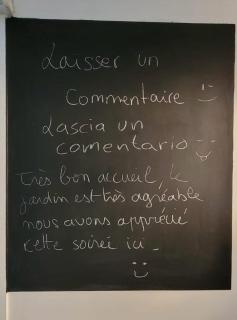 Laisser un
Commentaire
Lascia un
comentario
Très bon accueil, le
jardin est très agréable
nous avons apprécié
cette soireé ici -